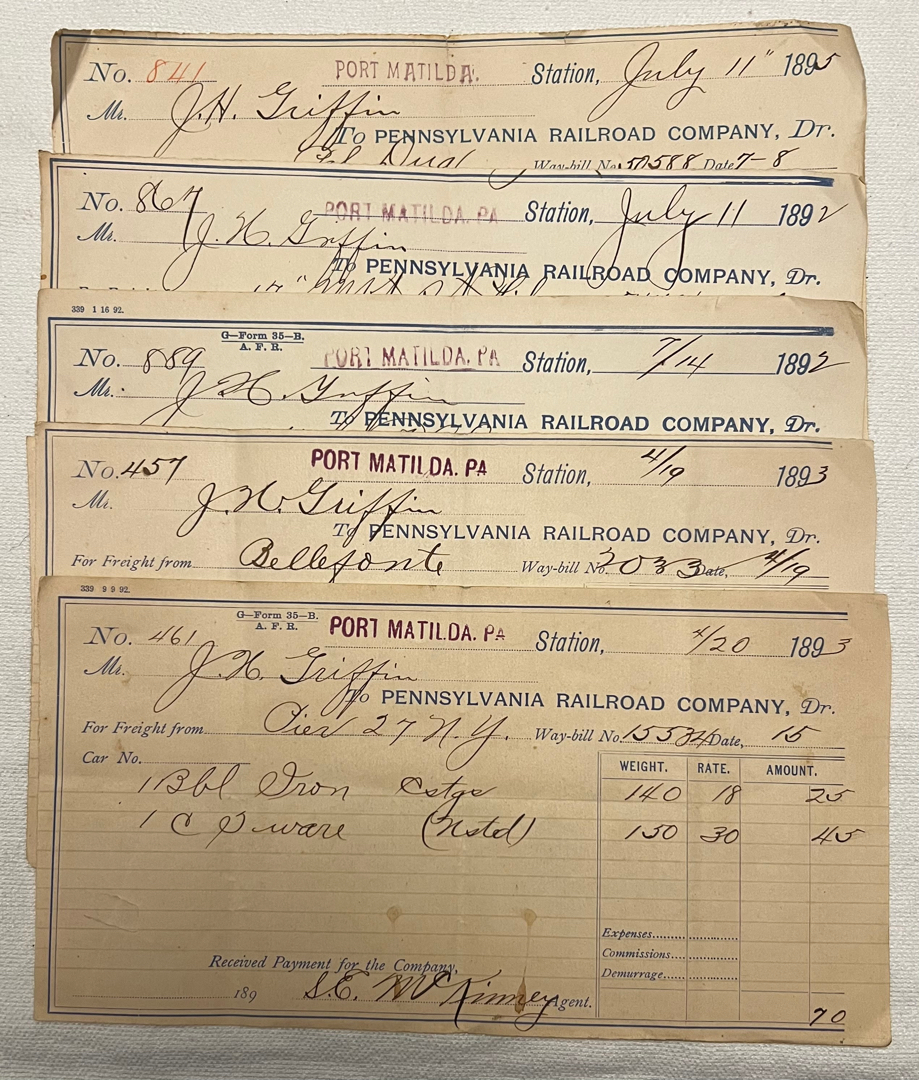 No. 841 PORT MATILDA. Station, July 11" 1895
Mr. J.H. Griffin
To PENNSYLVANIA RAILROAD COMPANY, Dr.
Way-bill No. 588 Date 7-8
No. 867 PORT MATILDA, PA Station, July 11 1892
Mr. J. H. Griffin
To PENNSYLVANIA RAILROAD COMPANY, Dr.
339 1 16 92.
G—Form 35—B.
A. F. R.
No. 889 PORT MATILDA, PA Station, 7/14 1892
Mr. J H Griffin
To PENNSYLVANIA RAILROAD COMPANY, Dr.
No. 457 PORT MATILDA. PA Station, 4/19 1893
Mr. J. H. Griffin
To PENNSYLVANIA RAILROAD COMPANY, Dr.
For Freight from Bellefonte Way-bill No. 3033 Date, 4/19
339 9 9 92.
G—Form 35—B.
A. F. R.
No. 461 PORT MATILDA. PA Station, 4/20 1893
Mr. J. H. Griffin
To PENNSYLVANIA RAILROAD COMPANY, Dr.
For Freight from Pier 27 N.Y. Way-bill No. 15534 Date, 15
Car No. WEIGHT. RATE. AMOUNT.
1 Bbl Iron Cstgs 140 18 25
1 C S ware (Nstd) 150 30 45
Expenses
Commissions
Demurrage
Received Payment for the Company,
189 S.E. McKinney Agent.
70